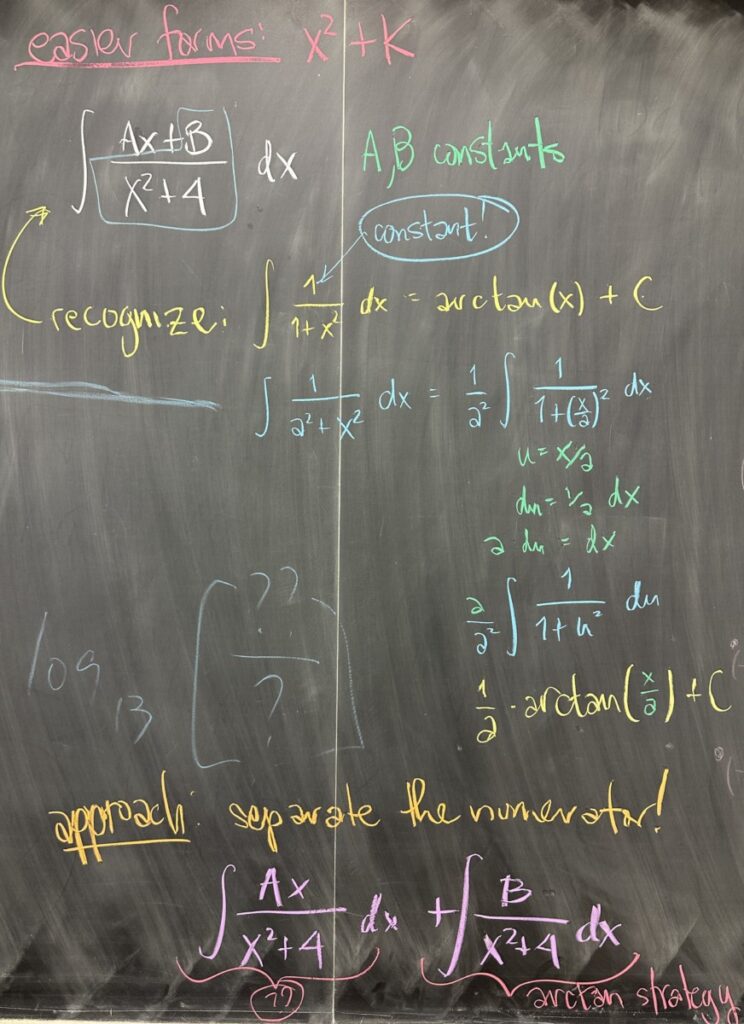 easier forms: x² + K
∫ (Ax + B)/(x² + 4) dx A, B constants
constant!
recognize: ∫ 1/(1 + x²) dx = arctan(x) + C
∫ 1/(a² + x²) dx = 1/a² ∫ 1/(1 + (x/a)²) dx
u = x/a
du = 1/a dx
a du = dx
a/a² ∫ 1/(1 + u²) du
1/a · arctan(x/a) + C
log₁₃ [??/?]
approach: separate the numerator!
∫ Ax/(x² + 4) dx + ∫ B/(x² + 4) dx
?? arctan strategy